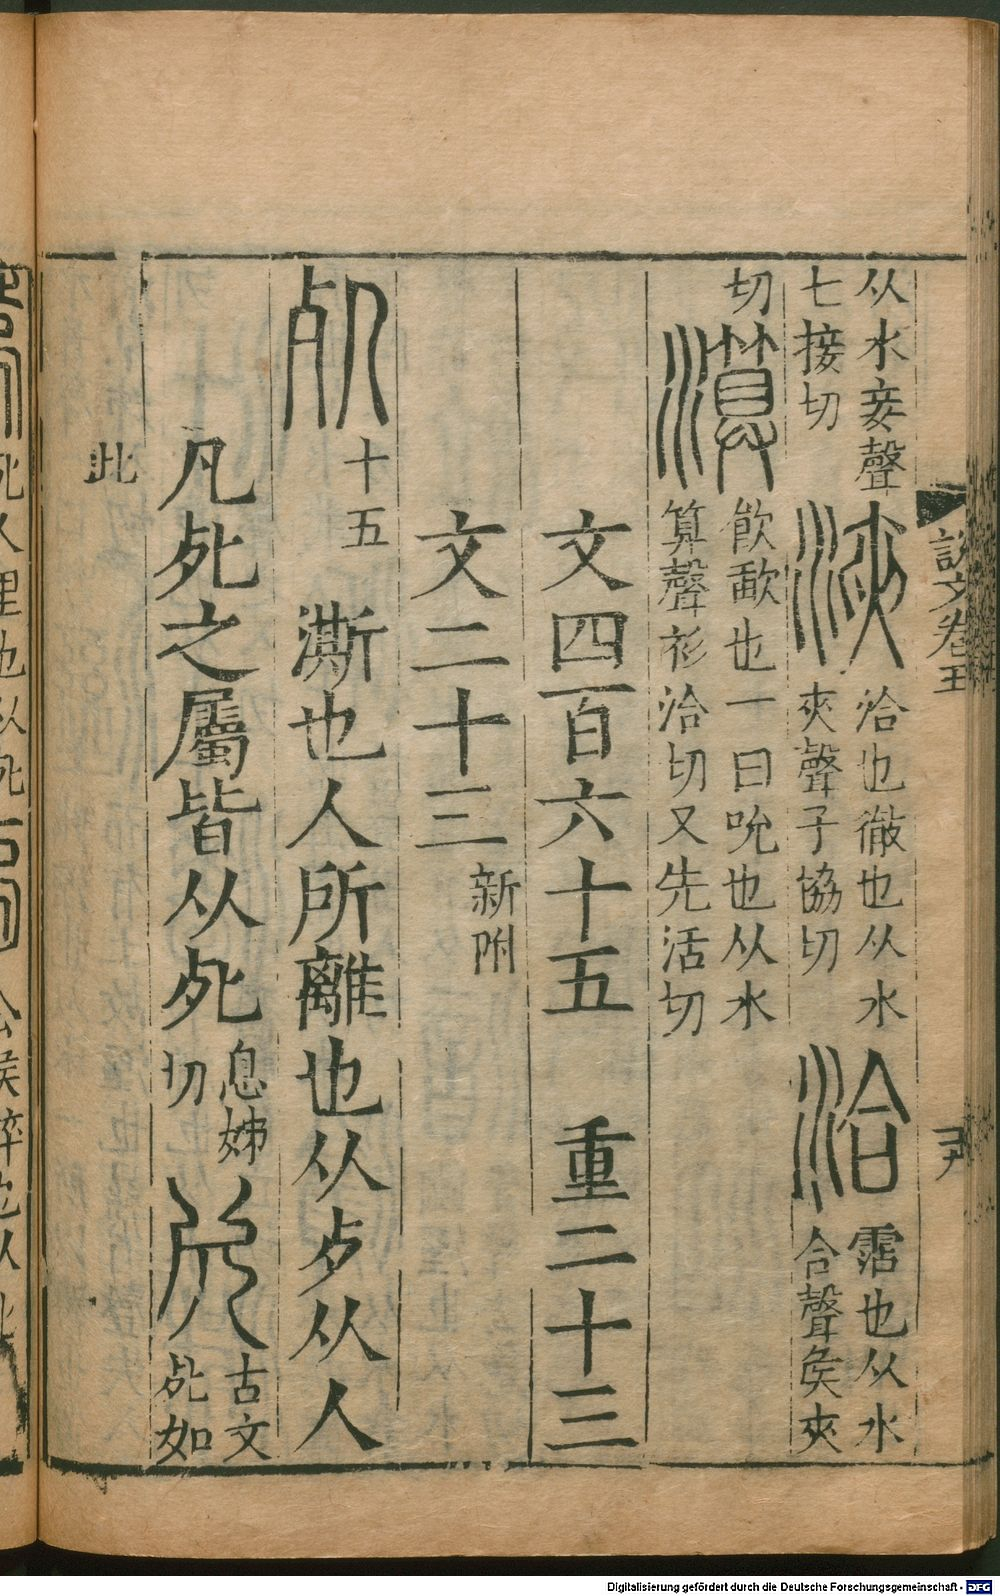 从水妾聲
七接切
浹
洽也徹也从水
夾聲子協切
洽
霑也从水
合聲矦夾
切
飲歃也一曰吮也从水
算聲衫洽切又先活切
文四百六十五　重二十三
文二十三
新附
十五
澌也人所離也从歺从人
凡死之屬皆从死
息姊
切
古文
死如
此
說文卷
Digitalisierung gefördert durch die Deutsche Forschungsgemeinschaft - DFG